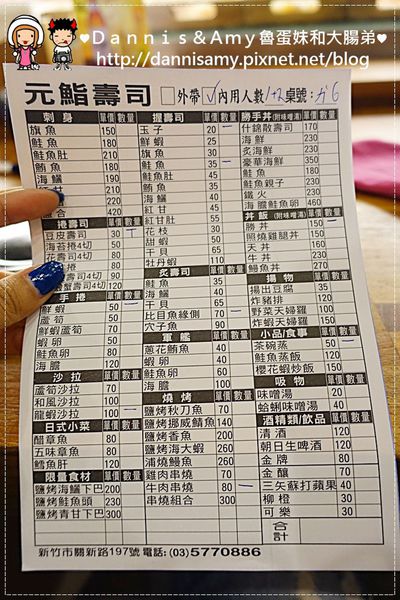 ♥Dannis&Amy魯蛋妹和大腸弟♥
http://dannisamy.pixnet.net/blog
元鮨壽司 □外帶 □內用人數 桌號:
刺身 單價 數量
旗魚 150
鮭魚 180
鮭魚肚 210
鮪魚
海鱺
捲壽司 單價 數量
豆皮壽司 30
海苔捲4切 50
花壽司4切
手捲 單價 數量
鮮蝦 50
蘆筍 50
鮮蝦蘆筍 60
蝦卵 50
鮭魚卵 80
海膽 120
沙拉 單價 數量
蘆筍沙拉 100
和風沙拉 100
龍蝦沙拉 100
日式小菜 單價 數量
醋章魚 80
五味章魚 80
鱈魚肝
限量食材 單價 數量
鹽烤海鱺下巴 200
鹽烤鮭魚頭 230
鹽烤青甘下巴 300
握壽司 單價 數量
玉子 20
鮮蝦 25
旗魚 30
鮭魚 35
鮪魚 35
海鱺
紅甘 45
紅甘肚 55
花枝
甜蝦
干貝
牡丹蝦
炙壽司 單價 數量
鮭魚 35
海鱺 40
干貝
比目魚緣側 70
穴子魚 90
軍艦 單價 數量
蔥花鮪魚 40
蝦卵 40
鮭魚卵 60
海膽 100
燒烤 單價 數量
鹽烤秋刀魚 70
鹽烤挪威鯖魚 140
鹽烤香魚 200
鹽烤海大蝦 260
蒲燒鰻魚 260
雞肉串燒 70
牛肉串燒 80
串燒組合 300
勝手丼(附味噌湯) 單價 數量
什錦散壽司 170
海鮮 230
炙海鮮
豪華海鮮 350
鮭魚
鮭魚親子
鐵火
海膽鮭魚卵 460
丼飯(附味噌湯) 單價 數量
勝丼
照燒雞腿丼
天丼
牛丼
鰻魚丼
揚物 單價 數量
揚出豆腐
炸豬排
野菜天婦羅
炸蝦天婦羅
小品/食事 單價 數量
茶碗蒸
鮭魚蒸飯
櫻花蝦炒飯
吸物 單價 數量
味噌湯
蛤蜊味噌湯
酒精類/飲品 單價 數量
清酒 120
朝日生啤酒 120
金牌 80
金釀
三矢蘇打蘋果 40
柳橙 30
可樂 30
合計
新竹市關新路197號 電話:(03)5770886